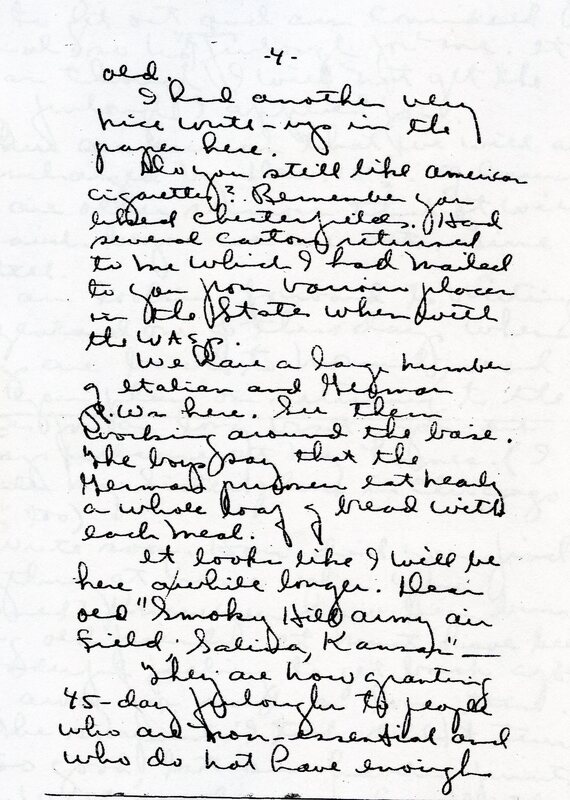 -4-
old.
I had another very
nice write-up in the
paper here.
Do you still like American
cigarettes? Remember you
liked Chesterfields. Had
several cartons returned
to me which I had mailed
to you from various places
in the States when with
the WASP.
We have a large number
of Italian and German
P.Ws here. See them
working around the base.
The boys say that the
German prisoners eat nearly
a whole loaf of bread with
each meal.
It looks like I will be
here awhile longer. Dear
old "Smoky Hill Army Air
Field, Salina, Kansas" —
They are now granting
45-day furloughs to people
who are non-essential and
who do not have enough